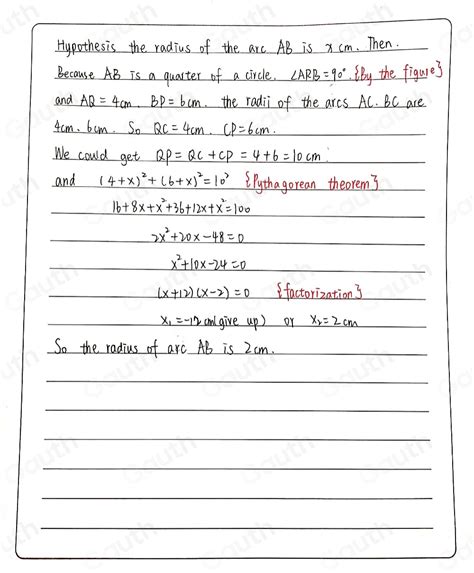 Hypothesis the radius of the arc AB is x cm. Then.
Because AB is a quarter of a circle. ∠ARB=90°. {By the figure}
and AQ = 4cm. BP = 6cm. the radii of the arcs AC. BC are
4cm. 6cm. So QC=4cm. CP=6cm.
We could get QP = QC + CP = 4+6=10cm.
and (4+x)²+(6+x)²=10² {Pythagorean theorem}
16+8x+x²+36+12x+x²=100
2x²+20x-48=0
x²+10x-24=0
(x+12)(x-2)=0 {factorization}
x₁=-12cm(give up) or x₂=2cm
So the radius of arc AB is 2cm.